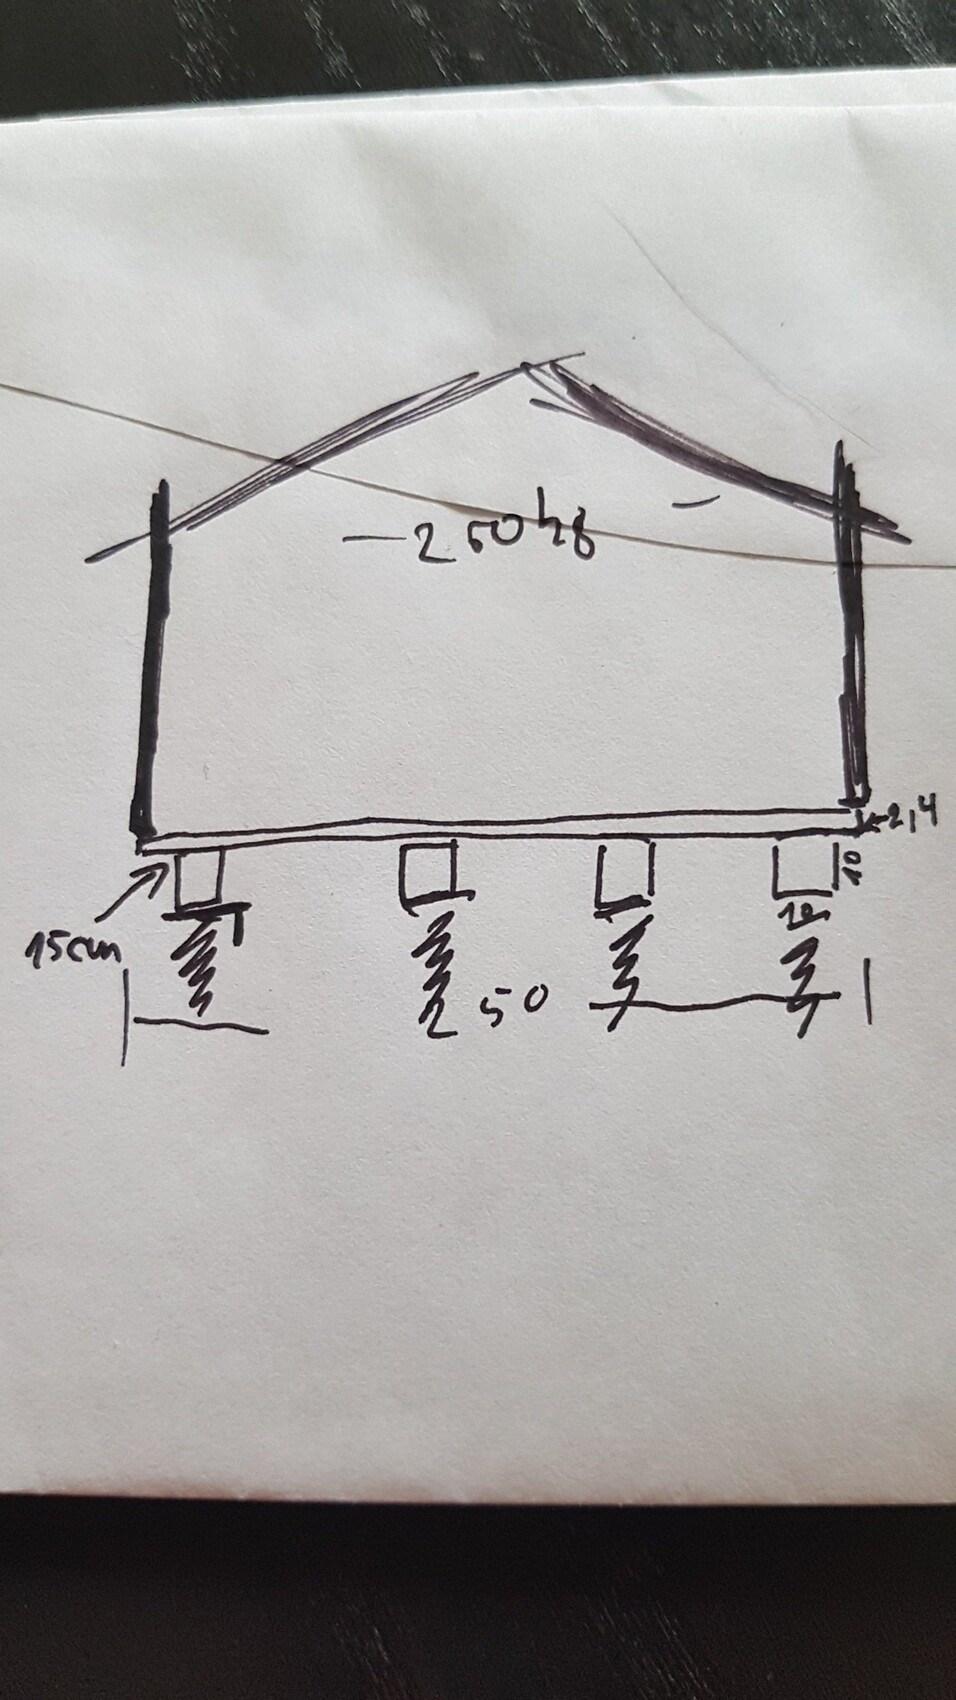 250 kg
2,4
10
15cm
10
250